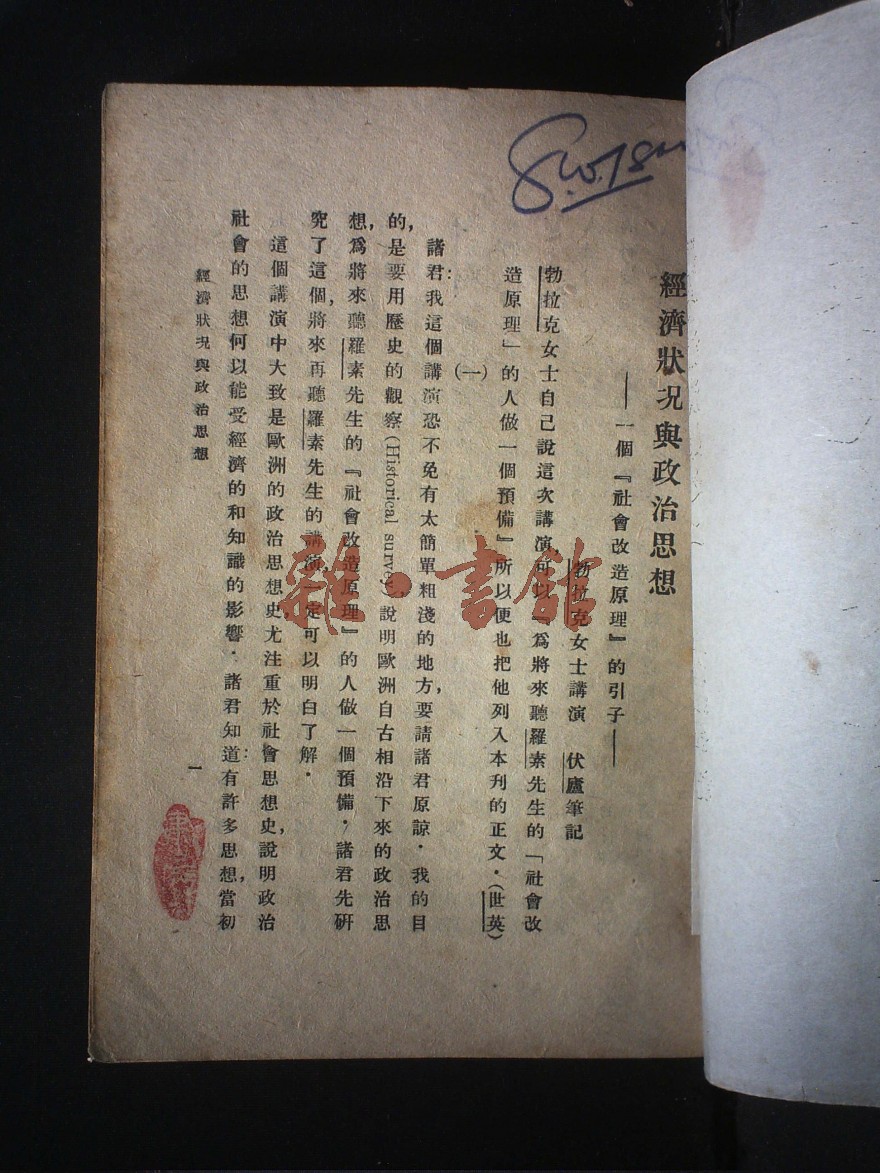 經濟狀況與政治思想
——一個『社會改造原理』的引子——
勃拉克女士講演　伏廬筆記
勃拉克女士自己說這次講演，可以『爲將來聽羅素先生的「社會改
造原理」的人做一個預備』所以便也把他列入本刊的正文．（世英）
（一）
諸君：我這個講演恐不免有太簡單粗淺的地方，要請諸君原諒．我的目
的，是要用歷史的觀察(Historical survey)說明歐洲自古相沿下來的政治思
想，爲將來聽羅素先生的『社會改造原理』的人做一個預備．諸君先硏
究了這個，將來再聽羅素先生的講演，一定可以明白了解．
這個講演中大致是歐洲的政治思想史尤注重於社會思想史，說明政治
社會的思想何以能受經濟的和知識的影響．諸君知道：有許多思想，當初
經濟狀況與政治思想
一
雜·書館